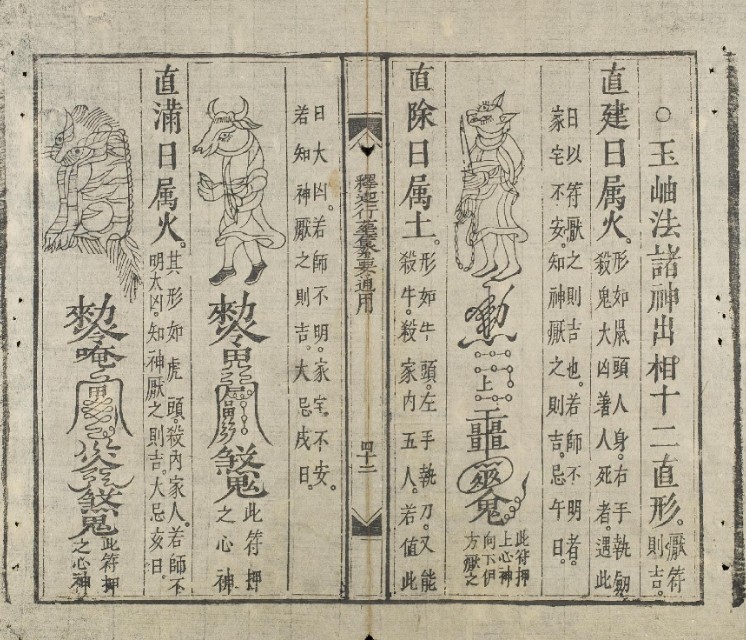 ○玉岫法諸神出相十二直形。厭符則吉。
直建日属火。形如鼠頭人身。右手執劒殺鬼大凶著人死者。遇此
日以符厭之則吉也。若師不明者。
家宅不安。知神厭之則吉。忌午日。
此符押上心神向下伊方厭之
直除日属土。形如牛頭。左手執刀。又能殺牛。殺家内五人。若值此
釋迦行遣集要通用
四十二
日大凶。若師不明。家宅不安。
若知神厭之則吉。大忌戌日。
此符押之心神
直滿日属火。其形如虎頭。殺内家人。若師不明大凶。知神厭之則吉。大忌亥日。
此符押之心神